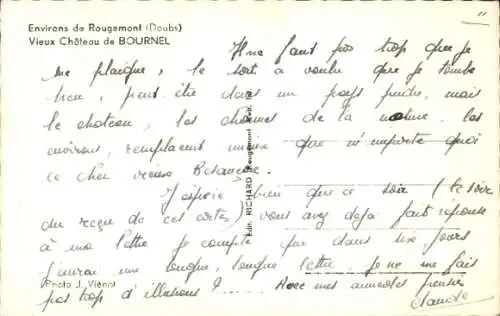 Environs de Rougemont (Doubs)
Vieux Château de BOURNEL
Il ne faut pas trop que je
me plaigne, le sort a voulu que je tombe
bien, peut être dans un pays perdu, mais
le chateau, les charmes de la nature, les
environs, remplacent mieux que n'importe quoi
ce cher vieux Besançon.
J'espère bien que ce soir (le soir
du reçu de ces cartes) vous avez déjà fait réponse
à ma lettre. Je compte que dans six jours
j'aurai une longue, longue lettre. Je ne me fais
pas trop d'illusions ? ..... Avec mes amicales pensées
Claude
(Photo J. Viénot)
Edit. RICHARD, Rougemont